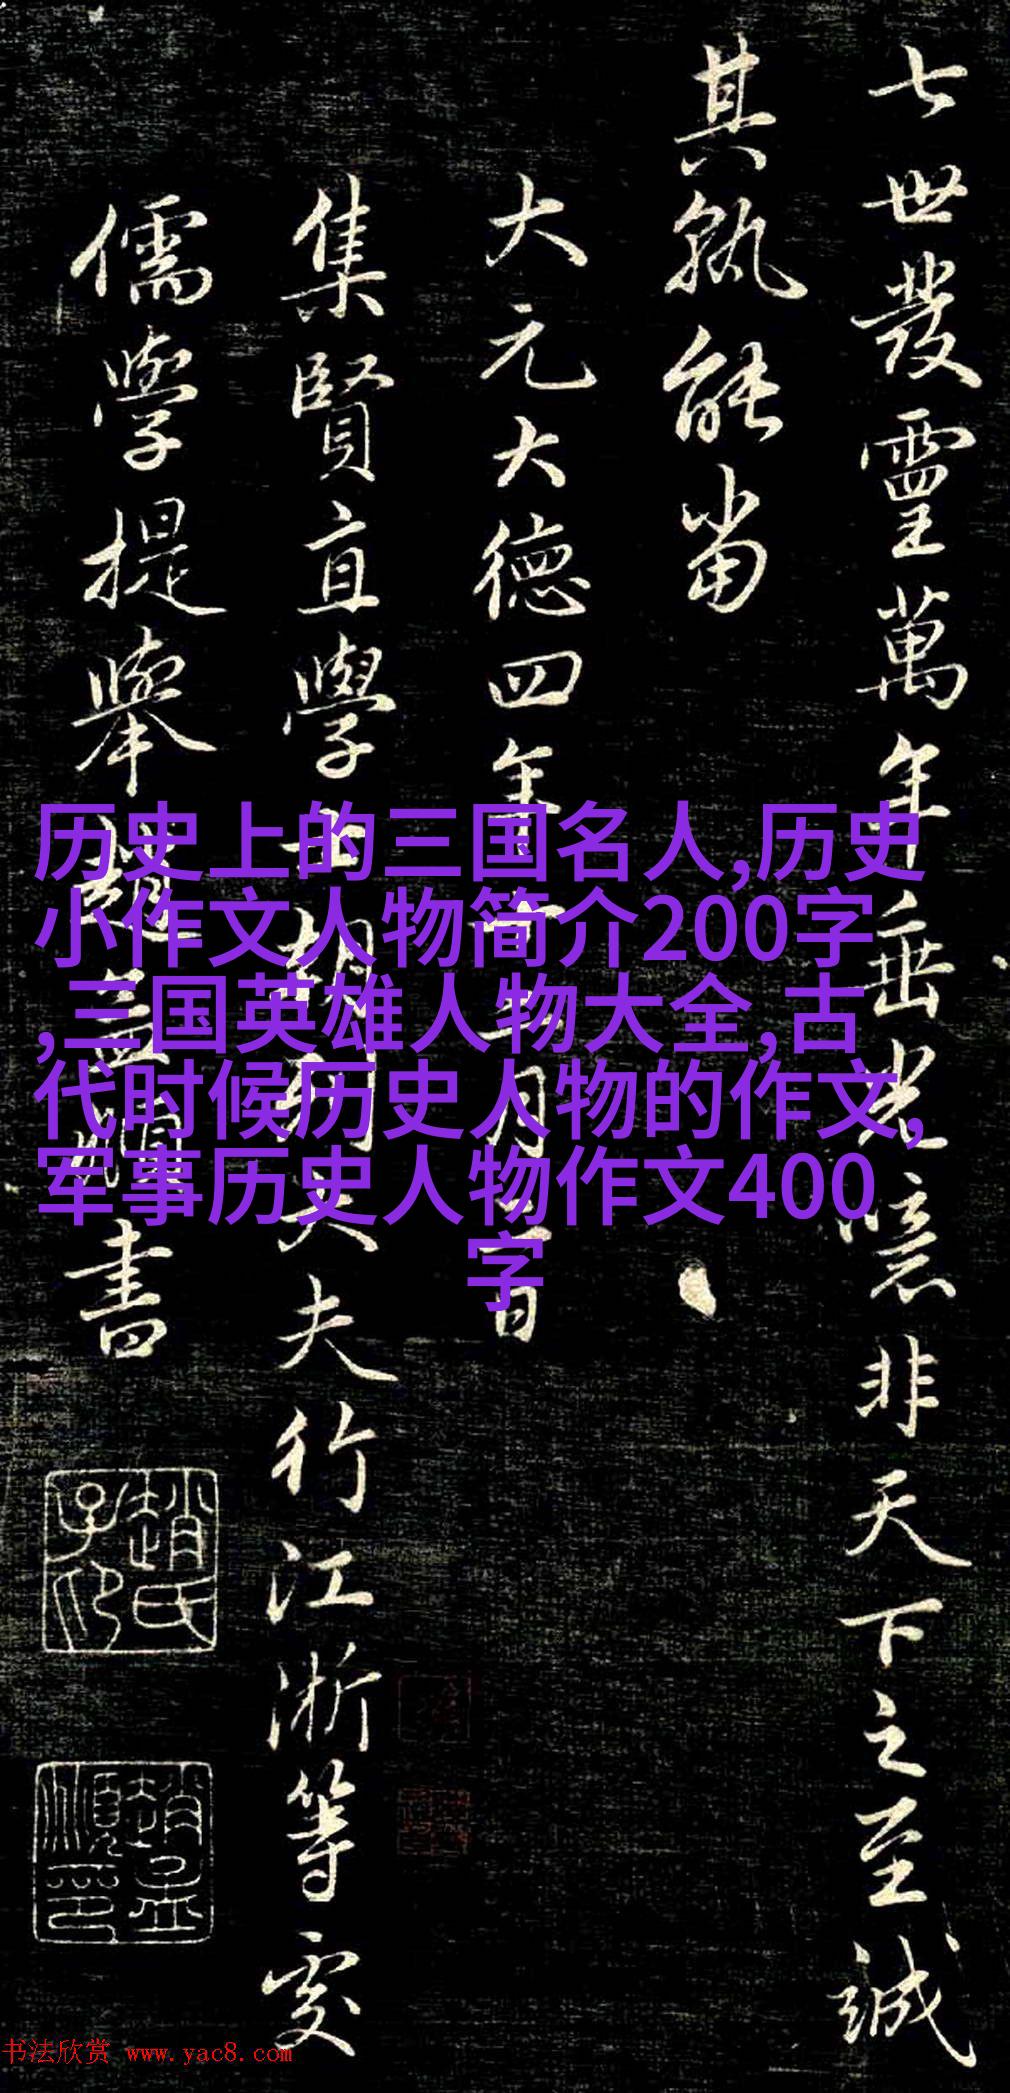 七世發靈萬年垂光噫非天下之至誠
其孰能當
大元大德四年月日
集賢直學士朝列大夫行江浙等處
儒學提舉趙孟頫書
趙氏子昂
趙孟頫印
历史上的三国名人,历史
小作文人物简介200字
,三国英雄人物大全,古
代时候历史人物的作文,
军事历史人物作文400
字
书法欣赏 www.yac8.com